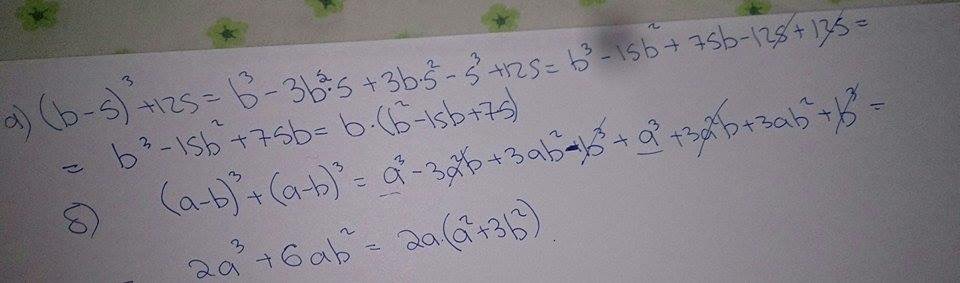 а) (b-5)³+125 = b³-3b²·5+3b·5²-5³+125 = b³-15b²+75b-125+125 =
= b³-15b²+75b = b·(b²-15b+75)
б) (a-b)³+(a-b)³ = a³-3a²b+3ab²-b³+a³+3a²b+3ab²+b³ =
= 2a³+6ab² = 2a·(a²+3b²).